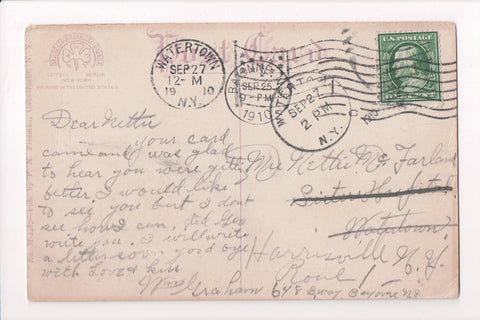 Post Card
WATERTOWN
SEP 27
12-M
1910
N.Y.
BAYONNE
SEP 25
9-PM
1910
WATERTOWN
SEP 27
2 PM
N.Y.
U.S. POSTAGE
LEIPZIG BERLIN
NEW YORK
PRINTED IN THE UNITED STATES
Dear Nettie
your card
came and was glad
to hear you were getting
better. I would like
to see you but I dont
see how I can, did Geo
write you. I will write
a letter soon good bye
with Love & kiss
Mrs Graham
Mrs Nettie McFarland
Sister Hospital
Watertown
Harrisville N.Y.
Rout 1
648 Bway. Bayonne N.J.